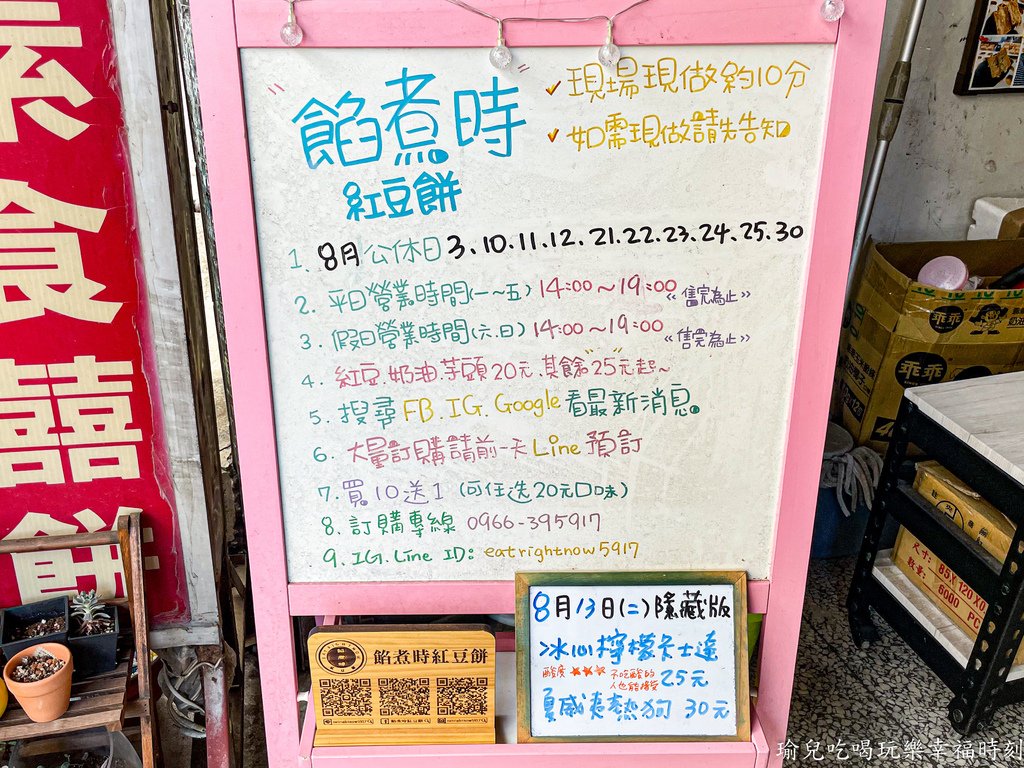 素食囍餅
餡煮時
紅豆餅
✓現場現做約10分
✓如需現做請先告知
1. 8月公休日3、10、11、12、21、22、23、24、25、30
2. 平日營業時間(一~五)14:00~19:00《售完為止》
3. 假日營業時間(六.日)14:00~19:00《售完為止》
4. 紅豆.奶油.芋頭20元.其餘25元起~
5. 搜尋FB.IG.Google看最新消息。
6. 大量訂購請前一天Line預訂
7. 買10送1 (可任选20元口味)
8. 訂購專線 0966-395917
9. IG.Line ID: eatrightnow5917
餡煮時紅豆餅
8月13日(二)隱藏版
冰心檸檬卡士達
酸度★★★ 不吃酸的
人也能接受 25元
夏威夷熱狗 30元
乖乖
乖乖
尺寸: 85x120x0
數量: 6000 PC
瑜兒吃喝玩樂幸福時刻